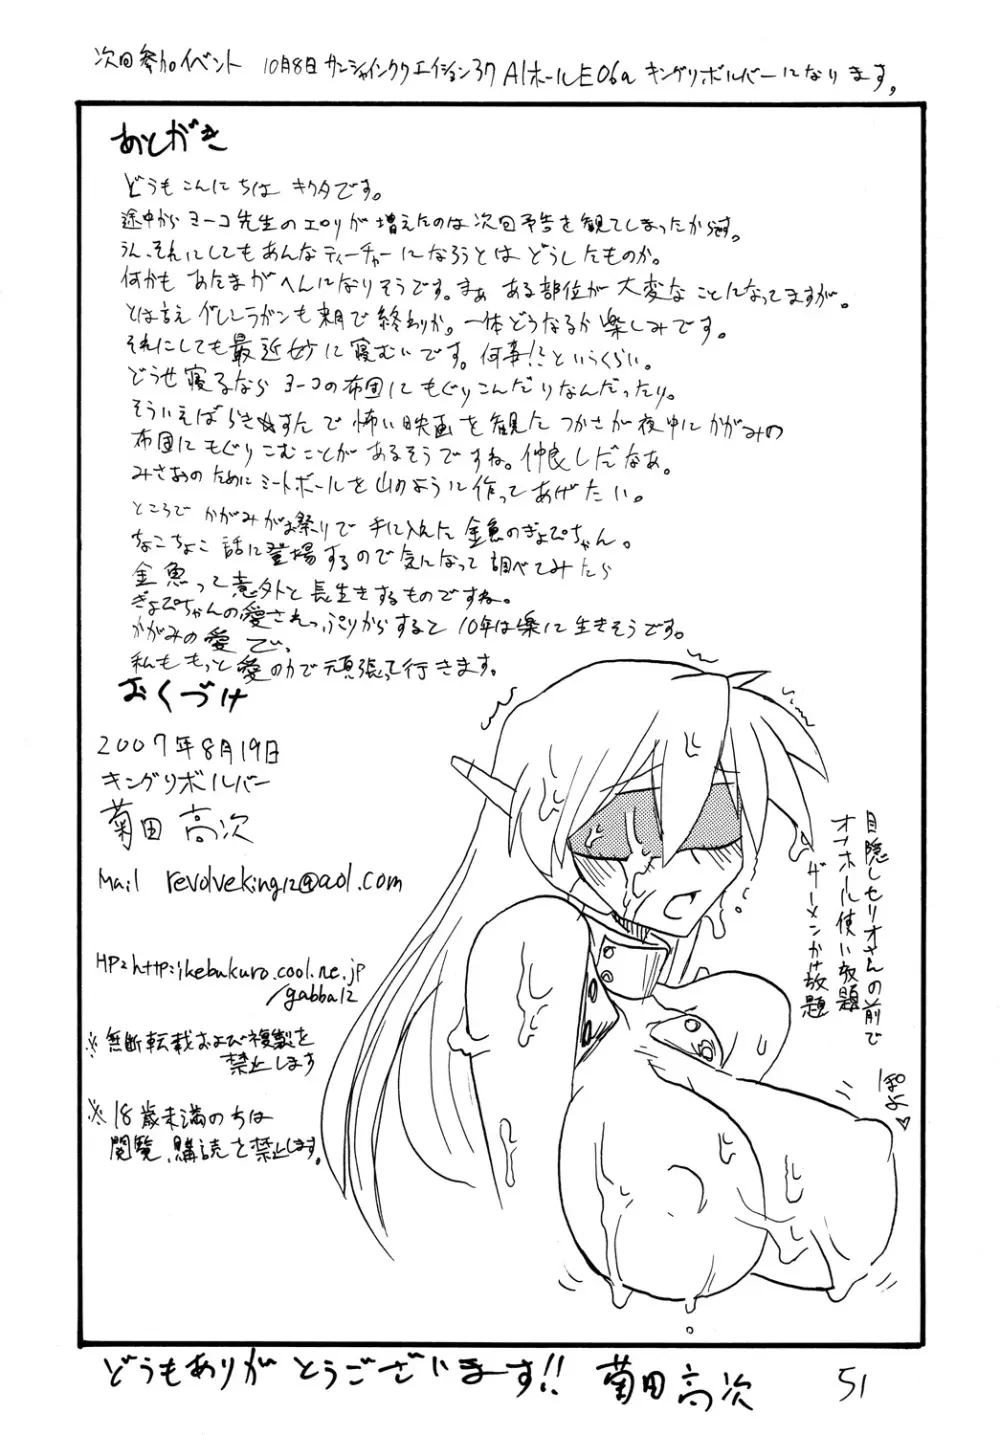 次回参加イベント 10月8日 サンシャインクリエイション37 A1ホールE06a キングリボルバーになります。
あとがき
どうもこんにちは キクタです。
途中からヨーコ先生のエロリが増えたのは次回予告を観てしまったからです。
うん、それにしてもあんなティーチャーになろうとはどうしたものか。
何かもあたまがへんになりそうです。まぁある部位が大変なことになってますが。
とは言えグレンラガンも来月で終わりか。一体どうなるか楽しみです。
それにしても最近妙に寝むいです。何事!?というくらい。
どうせ寝るならヨーコの布団にもぐりこんだりなんだったり。
そういえばらき☆すたで怖い映画を観たつかさが夜中にかがみの
布団にもぐりこむことがあるそうですね。仲良しだなぁ。
みさおのためにミートボールを山のように作ってあげたい。
ところでかがみがお祭りで手に入れた金魚のぎょぴちゃん。
ちょこちょこ話に登場するので気になって調べてみたら
金魚って意外と長生きするものですね。
ぎょぴちゃんの愛されっぷりからすると10年は楽に生きそうです。
かがみの愛で。
私ももっと愛の力で頑張って行きます。
おくづけ
2007年8月19日
キングリボルバー
菊田 高次
Mail revolveking12@aol.com
HP=http://ikebukuro.cool.ne.jp
/gabba12
※無断転載および複製を
禁止します
※18歳未満のちは
閲覧、購読を禁止します。
目隠しセリオさんの前で
オナホール使い放題
ザーメンかけ放題
ぽよ♡
どうもありがとうございます!! 菊田高次
51